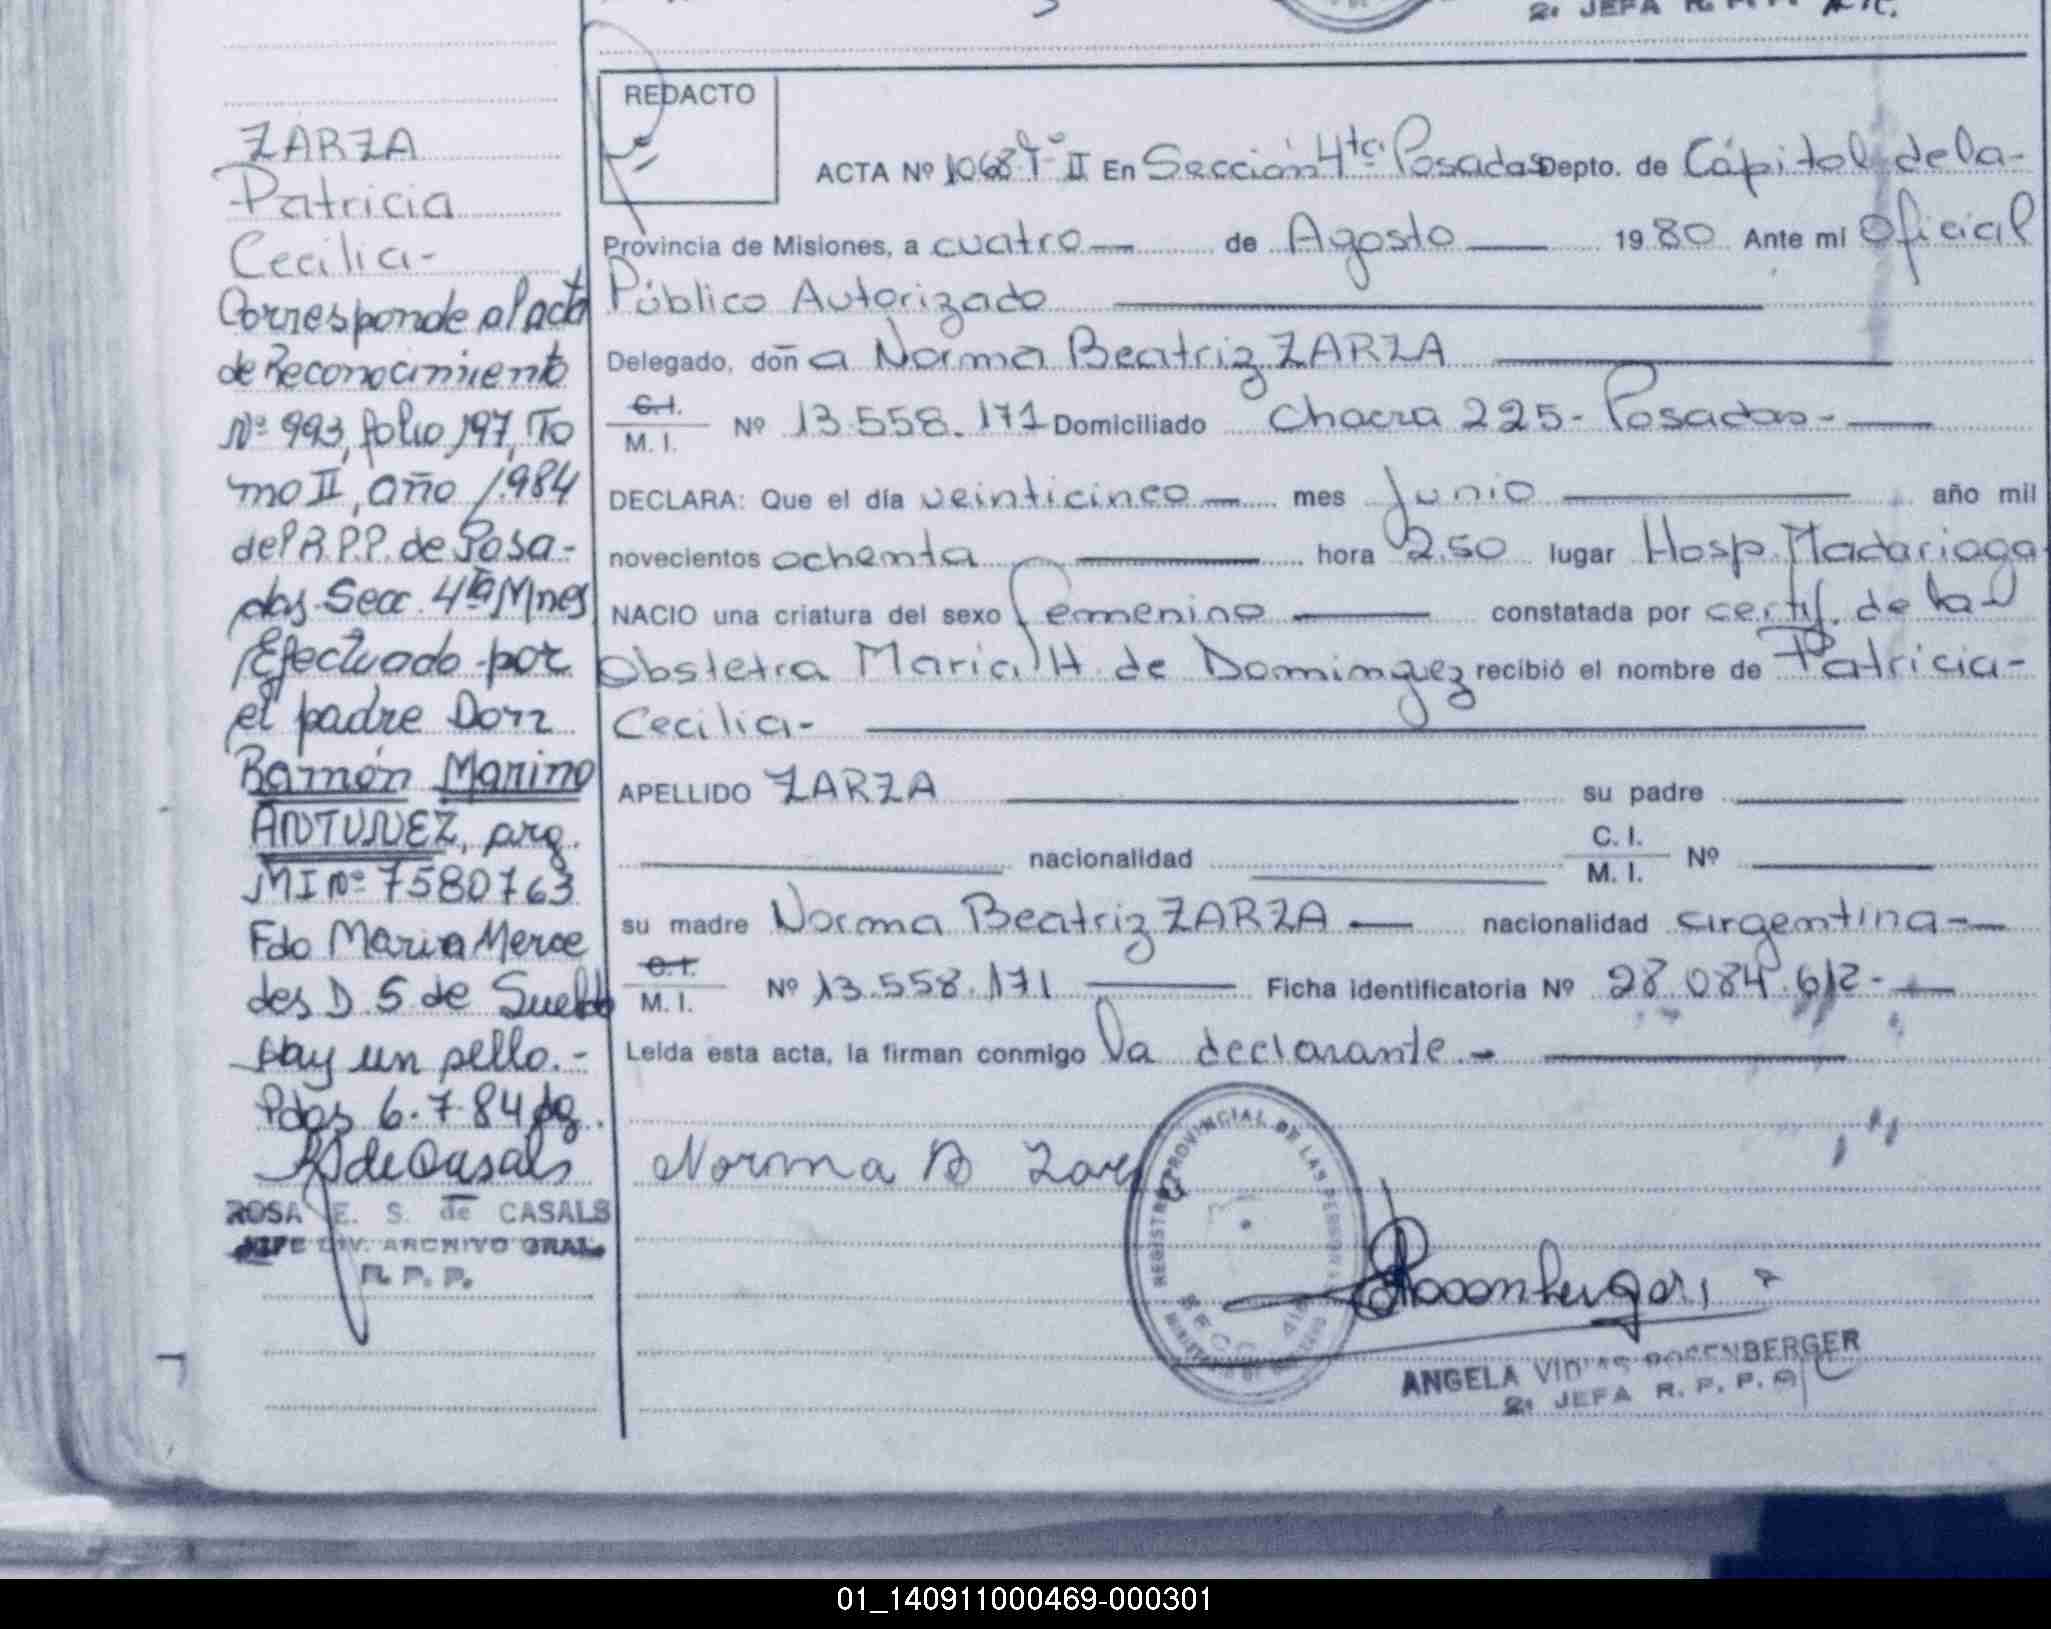 2ª JEFA R. P. P.
ZARZA
Patricia
Cecilia-
Corresponde al acta
de Reconocimiento
Nº 993, folio 197, To
mo II, año 1984
del R.P.P. de Posa-
das Secc. 4ta Mnes
Efectuado por
el padre Don
Ramón Marino
ANTUNEZ, arg.
MI Nº 7580763
Fdo Maria Merce
des D. S de Sueldo
Hay un sello.-
Pdas 6.7.84
R de Casals
ROSA E. S. de CASALS
JEFE DIV. ARCHIVO GRAL.
R. P. P.
REDACTO
ACTA Nº 1068 Tº II En Sección 4ta Posadas Depto. de Capital de la-
Provincia de Misiones, a cuatro — de Agosto — 1980 Ante mi Oficial
Público Autorizado —
Delegado, doña Norma Beatriz ZARZA —
C.I.
M. I. Nº 13.558.171 Domiciliado Chacra 225- Posadas- —
DECLARA: Que el día veinticinco — mes Junio — año mil
novecientos ochenta — hora 2.50 lugar Hosp. Madariaga
NACIO una criatura del sexo femenino — constatada por certif. de la
Obstetra Maria H. de Dominguez recibió el nombre de Patricia-
Cecilia- —
APELLIDO ZARZA — su padre —
— nacionalidad — C. I.
M. I. Nº —
su madre Norma Beatriz ZARZA — nacionalidad argentina- —
C.I.
M. I. Nº 13.558.171 — Ficha identificatoria Nº 28.084.612- —
Leída esta acta, la firman conmigo la declarante.- —
Norma B Zarza
REGISTRO PROVINCIAL DE LAS PERSONAS
SECC. 4ta
Rosenberger
ANGELA VIDAS ROSENBERGER
2ª JEFA R. P. P.
01_140911000469-000301